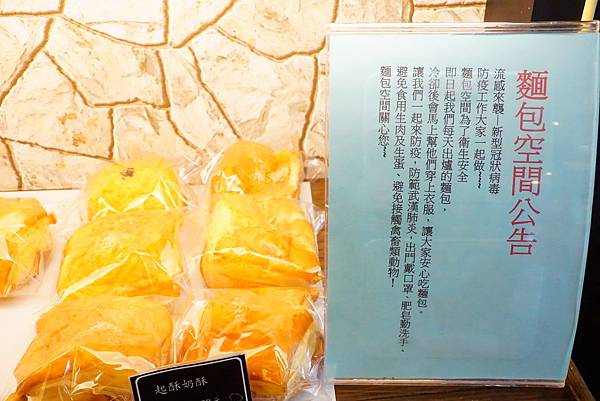 麵包空間公告
流感來襲—新型冠狀病毒
防疫工作大家一起做~~~
麵包空間為了衛生安全
即日起我們每天出爐的麵包，
冷卻後會馬上幫他們穿上衣服，讓大家安心吃麵包。
讓我們一起來防疫，防範武漢肺炎，出門戴口罩、肥皂勤洗手、
避免食用生肉及生蛋、避免接觸禽畜類動物！
麵包空間關心您~
起酥奶酥